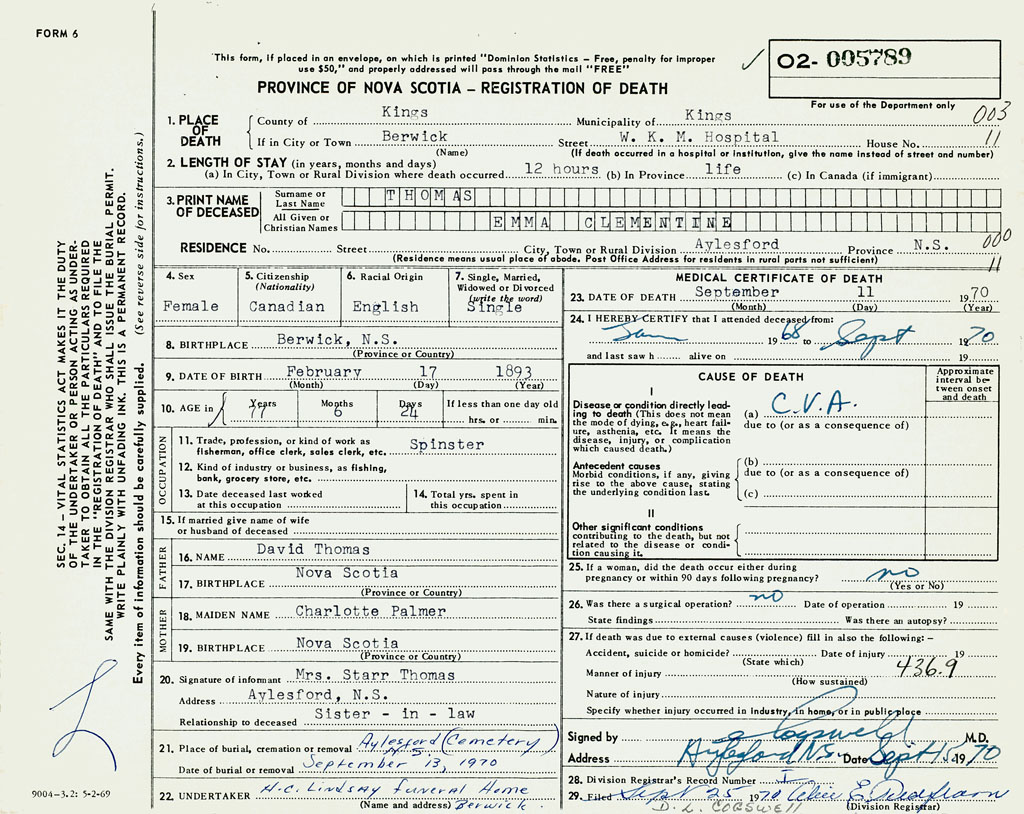 FORM 6
This form, if placed in an envelope, on which is printed "Dominion Statistics – Free, penalty for improper
use $50," and properly addressed will pass through the mail "FREE"
02- 005789
For use of the Department only
PROVINCE OF NOVA SCOTIA – REGISTRATION OF DEATH
003
1. PLACE OF DEATH
County of Kings Municipality of Kings
If in City or Town Berwick Street W. K. M. Hospital House No. 11
(Name) (If death occurred in a hospital or institution, give the name instead of street and number)
2. LENGTH OF STAY (in years, months and days)
(a) In City, Town or Rural Division where death occurred 12 hours (b) In Province life (c) In Canada (if immigrant)
3. PRINT NAME OF DECEASED
Surname or Last Name THOMAS
All Given or Christian Names EMMA CLEMENTINE
RESIDENCE No. Street City, Town or Rural Division Aylesford Province N.S. 000
(Residence means usual place of abode. Post Office Address for residents in rural parts not sufficient) 11
4. Sex
Female
5. Citizenship (Nationality)
Canadian
6. Racial Origin
English
7. Single, Married, Widowed or Divorced (write the word)
Single
8. BIRTHPLACE Berwick, N.S.
(Province or Country)
9. DATE OF BIRTH February 17 1893
(Month) (Day) (Year)
10. AGE in Years 77 Months 6 Days 24 If less than one day old
hrs. or min.
OCCUPATION
11. Trade, profession, or kind of work as
fisherman, office clerk, sales clerk, etc. Spinster
12. Kind of industry or business, as fishing,
bank, grocery store, etc.
13. Date deceased last worked
at this occupation
14. Total yrs. spent in
this occupation
15. If married give name of wife
or husband of deceased
FATHER
16. NAME David Thomas
17. BIRTHPLACE Nova Scotia
(Province or Country)
MOTHER
18. MAIDEN NAME Charlotte Palmer
19. BIRTHPLACE Nova Scotia
(Province or Country)
20. Signature of informant Mrs. Starr Thomas
Address Aylesford, N.S.
Relationship to deceased Sister - in - law
21. Place of burial, cremation or removal Aylesford (Cemetery)
N.S.
Date of burial or removal September 13, 1970
22. UNDERTAKER H.C. Lindsay Funeral Home
(Name and address) Berwick
MEDICAL CERTIFICATE OF DEATH
23. DATE OF DEATH September 11 1970
(Month) (Day) (Year)
24. I HEREBY CERTIFY that I attended deceased from:
Jan 1968 to Sept 1970
and last saw h alive on 19
CAUSE OF DEATH
Approximate interval between onset and death
I
Disease or condition directly leading to death (This does not mean the mode of dying, e.g., heart failure, asthenia, etc. It means the disease, injury, or complication which caused death.)
(a) C.V.A.
due to (or as a consequence of)
Antecedent causes
Morbid conditions, if any, giving rise to the above cause, stating the underlying condition last.
(b)
due to (or as a consequence of)
(c)
II
Other significant conditions
contributing to the death, but not related to the disease or condition causing it.
25. If a woman, did the death occur either during
pregnancy or within 90 days following pregnancy? no
(Yes or No)
26. Was there a surgical operation? no Date of operation 19
State findings Was there an autopsy?
27. If death was due to external causes (violence) fill in also the following: –
Accident, suicide or homicide? Date of injury 19
(State which)
Manner of injury 436.9
(How sustained)
Nature of injury
Specify whether injury occurred in Industry, in home, or in public place
Signed by Cogswell M.D.
Address Aylesford N.S. Date Sept 15 1970
28. Division Registrar's Record Number I
29. Filed Sept 25 1970 Alice E.
D. L. COGSWELL (Division Registrar)
SEC. 14 – VITAL STATISTICS ACT MAKES IT THE DUTY
OF THE UNDERTAKER OR PERSON ACTING AS UNDER-
TAKER TO OBTAIN ALL THE PARTICULARS REQUIRED
IN THE "REGISTRATION OF DEATH" AND TO FILE THE
SAME WITH THE DIVISION REGISTRAR WHO SHALL ISSUE THE BURIAL PERMIT.
WRITE PLAINLY WITH UNFADING INK. THIS IS A PERMANENT RECORD.
Every item of information should be carefully supplied. (See reverse side for instructions.)
9004-3.2: 5-2-69